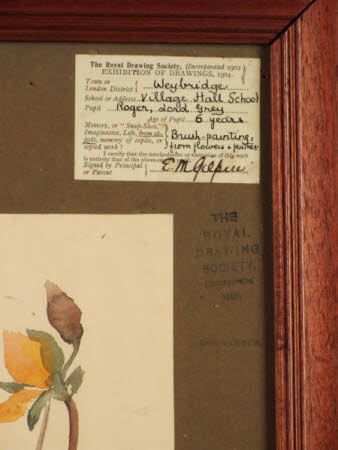 The Royal Drawing Society, (Incorporated 1902)
EXHIBITION OF DRAWINGS, 1904.
Town or London District } ... Weybridge.
School or Address Village Hall School
Pupil .... Roger, Lord Grey
Age of Pupil ... 6 years.
Memory, or "Snap-Shot,"
Imaginative, Life, from objects, memory of copies, or copied work? } Brush-painting, from flowers & feather
I certify that the
of this work
is entirely that of the above
Signed by Principal or Parent } E. M. Gilpin
THE
ROYAL
DRAWING
SOCIETY.